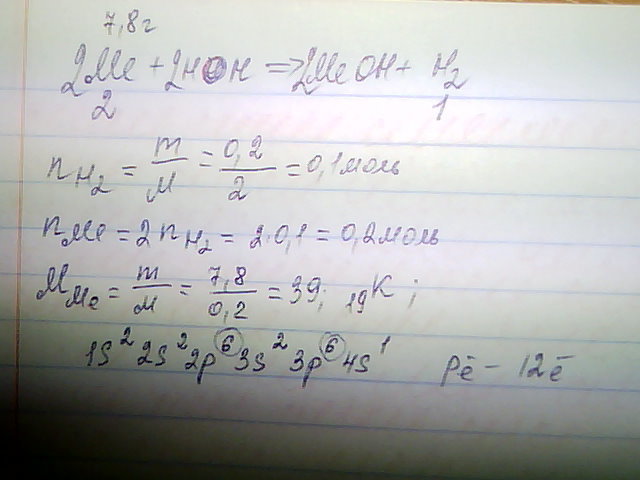 7,8г
2Me + 2HOH => 2MeOH + H₂
2 1
n H₂ = m/M = 0,2/2 = 0,1 моль
n Me = 2 n H₂ = 2·0,1 = 0,2 моль
M Me = m/м = 7,8/0,2 = 39; ₁₉K;
1S² 2S² 2p⁶ 3S² 3p⁶ 4S¹ pē – 12ē